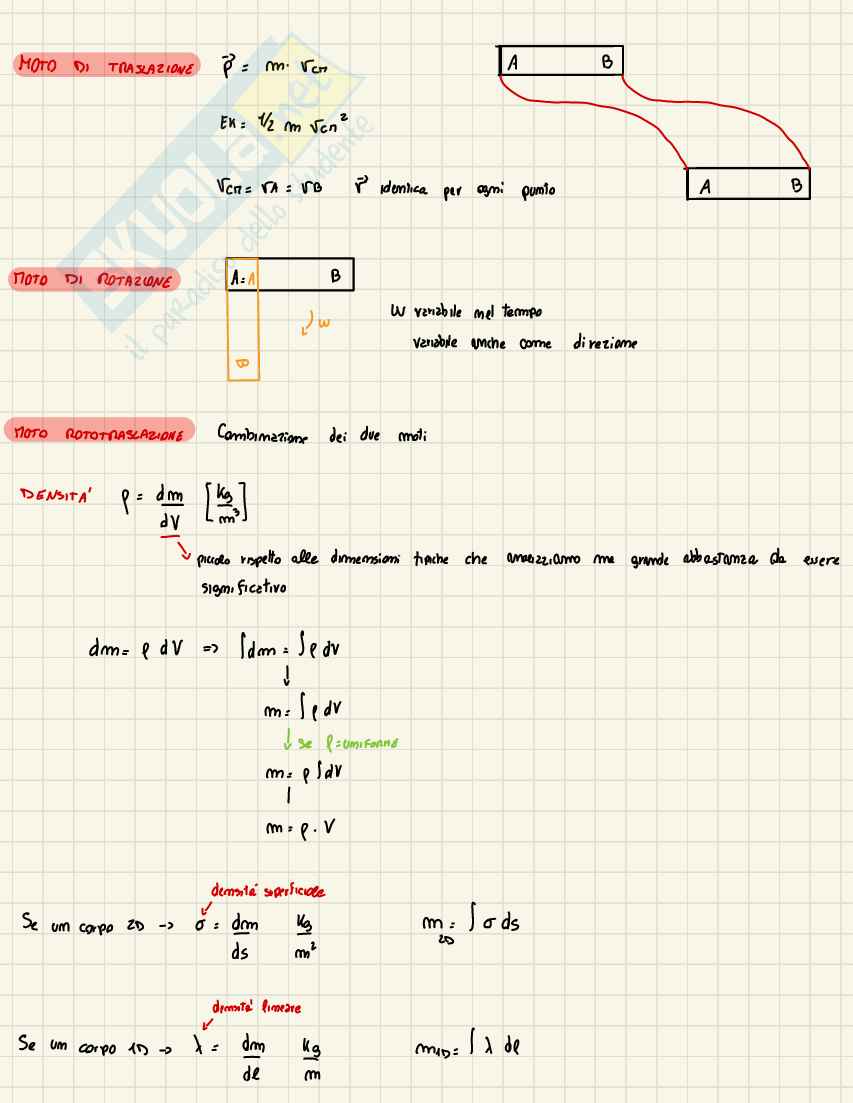 MOTO DI TRASLAZIONE p⃗ = m · v_CM
A B
Ek = 1/2 m v_CM²
v_CM = vA = vB v⃗ identica per ogni punto
A B
MOTO DI ROTAZIONE A = A B
W variabile nel tempo
W
variabile anche come direzione
B
MOTO ROTOTRASLAZIONE Combinazione dei due moti
DENSITA' ρ = dm/dV [kg/m³]
piccolo rispetto alle dimensioni tipiche che analizziamo ma grande abbastanza da essere
significativo
dm = ρ dV => ∫dm = ∫ρ dV
m = ∫ρ dV
se ρ = uniforme
m = ρ ∫dV
m = ρ · V
densità superficiale
Se un corpo 2D -> σ = dm/ds kg/m² m_2D = ∫ σ ds
densità lineare
Se un corpo 1D -> λ = dm/dl kg/m m_1D = ∫ λ dl
SKUOLA.net
il paradiso dello studente